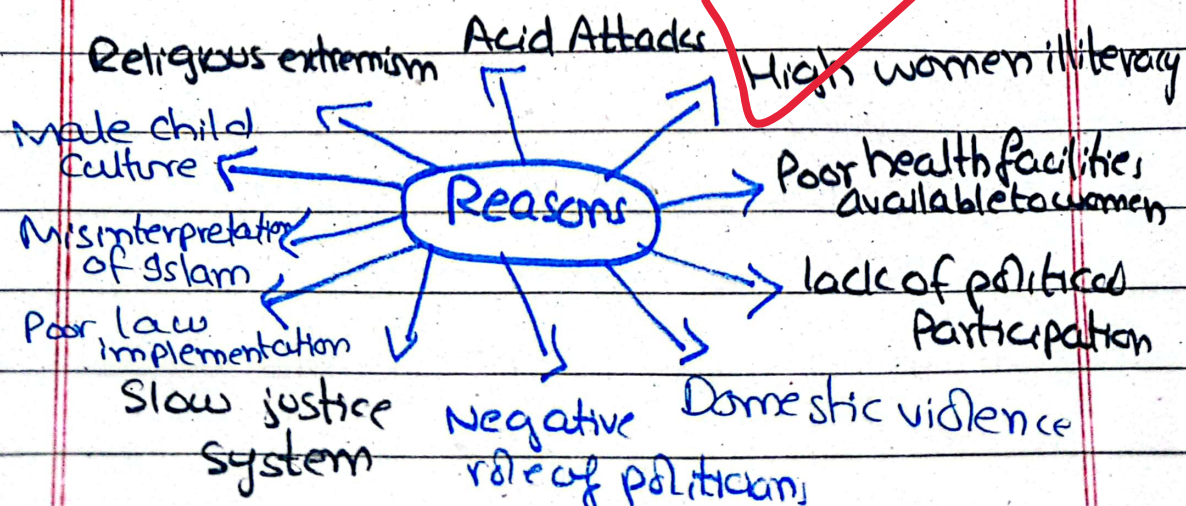 Acid Attacks
Religious extremism
High women illiteracy
Male child
Culture
Poor health facilities
available to women
Reasons
Misinterpretation
of Islam
lack of political
Participation
Poor law
implementation
Slow justice
system
Negative
role of politicians
Domestic violence